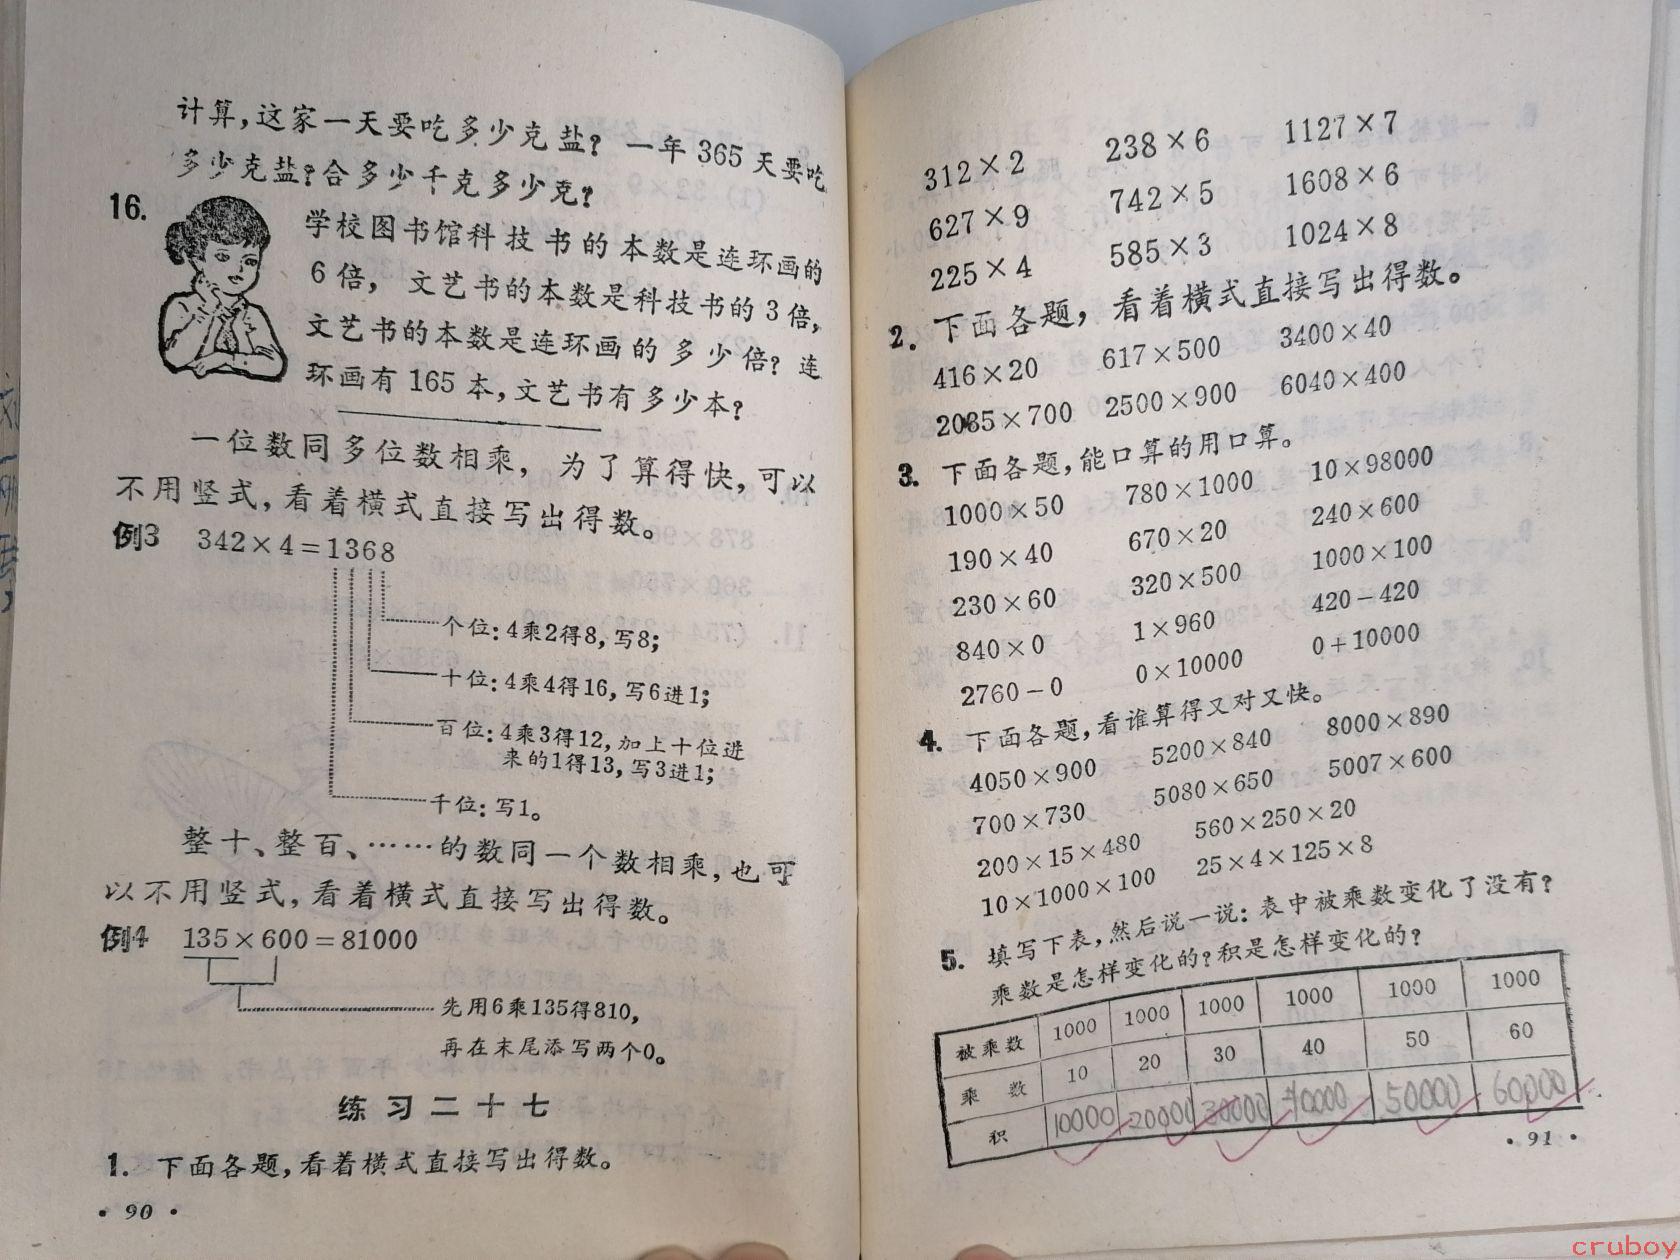 计算,这家一天要吃多少克盐?一年365天要吃
多少克盐?合多少千克多少克?
16.
学校图书馆科技书的本数是连环画的
6倍,文艺书的本数是科技书的3倍,
文艺书的本数是连环画的多少倍?连
环画有165本,文艺书有多少本?
一位数同多位数相乘,为了算得快,可以
不用竖式,看着横式直接写出得数。
例3 342×4=1368
个位:4乘2得8,写8;
十位:4乘4得16,写6进1;
百位:4乘3得12,加上十位进
来的1得13,写3进1;
千位:写1。
整十、整百、……的数同一个数相乘,也可
以不用竖式,看着横式直接写出得数。
例4 135×600=81000
先用6乘135得810,
再在末尾添写两个0。
练习二十七
1. 下面各题,看着横式直接写出得数。
· 90 ·
312×2 238×6 1127×7
627×9 742×5 1608×6
225×4 585×3 1024×8
2. 下面各题,看着横式直接写出得数。
416×20 617×500 3400×40
2035×700 2500×900 6040×400
3. 下面各题,能口算的用口算。
1000×50 780×1000 10×98000
190×40 670×20 240×600
230×60 320×500 1000×100
840×0 1×960 420-420
2760-0 0×10000 0+10000
4. 下面各题,看谁算得又对又快。
4050×900 5200×840 8000×890
700×730 5080×650 5007×600
200×15×480 560×250×20
10×1000×100 25×4×125×8
5. 填写下表,然后说一说:表中被乘数变化了没有?
乘数是怎样变化的?积是怎样变化的?
被乘数 1000 1000 1000 1000 1000 1000
乘数 10 20 30 40 50 60
积 10000 20000 30000 40000 50000 60000
· 91 ·
cruboy